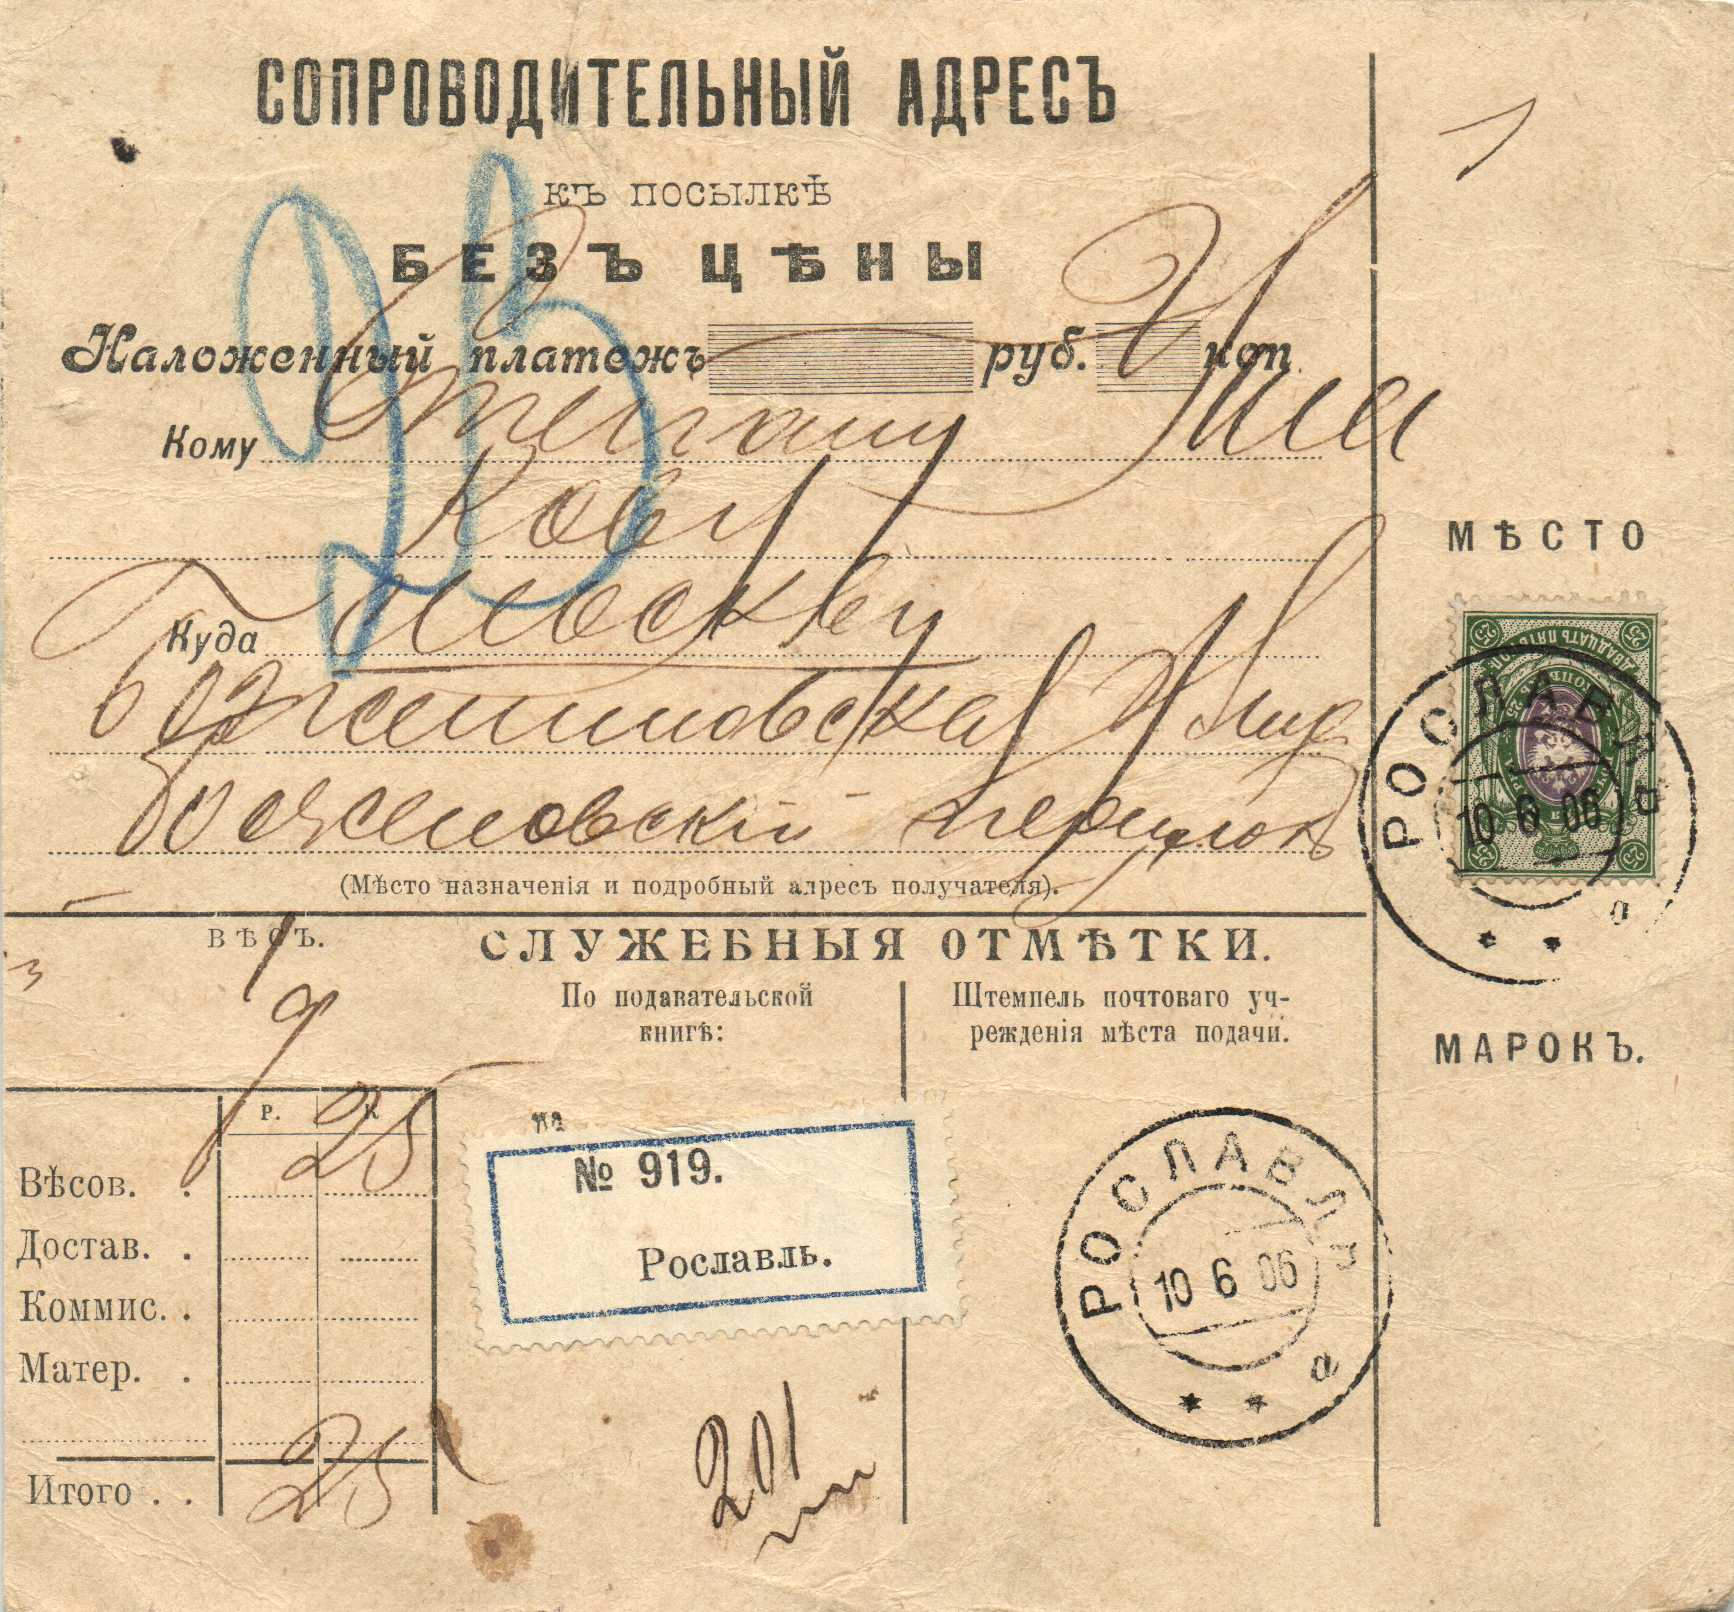 СОПРОВОДИТЕЛЬНЫЙ АДРЕСЪ
КЪ ПОСЫЛКѢ
БЕЗЪ ЦѢНЫ
Наложенный платежъ руб. коп.
Кому Степану
кову
Куда Москву
Боженинов­ская Улица
Боженовскій переулокъ
(Мѣсто назначенія и подробный адресъ получателя).
МѢСТО
МАРОКЪ.
25
ДВАДЦАТЬ ПЯТЬ КОП.
РОСЛАВЛЬ
10 6 06
а
ВѢСЪ.
СЛУЖЕБНЫЯ ОТМѢТКИ.
По подавательской
книгѣ:
Штемпель почтоваго уч-
режденія мѣста подачи.
Р. К
Вѣсов. . 25
Достав. .
Коммис. .
Матер. .
Итого . . 25
№ 919.
Рославль.
РОСЛАВЛЬ
10 6 06
а
201